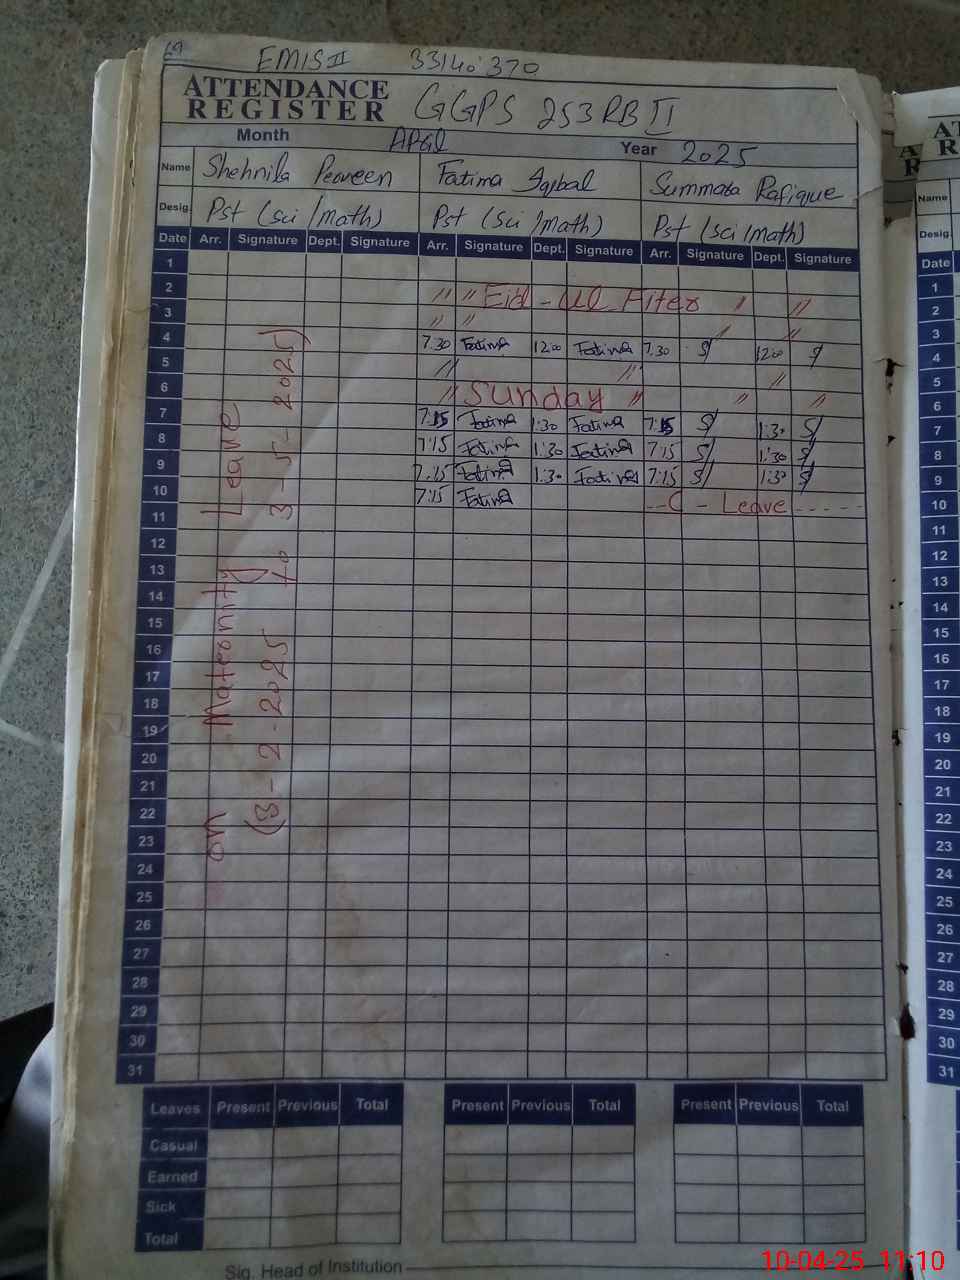 69 EMIS II 33140370
ATTENDANCE REGISTER GGPS 253 RB II
Month April Year 2025
Name Shehnila Perveen Fatima Iqbal Summara Rafique
Desig. Pst (sci/math) Pst (sci/math) Pst (sci/math)
Date Arr. Signature Dept. Signature Arr. Signature Dept. Signature Arr. Signature Dept. Signature
1
2 " " Eid - Ul Fiter " "
3 " " " "
4 7.30 Fatima 12:00 Fatima 7.30 S 12:00 S
5 " " "
6 " Sunday " " "
7 7:15 Fatima 1:30 Fatima 7:15 S 1:30 S
8 7:15 Fatima 1:30 Fatima 7:15 S 1:30 S
9 7:15 Fatima 1:30 Fatima 7:15 S 1:30 S
10 7:15 Fatima --C - Leave -----
11
12
13
14
15
16
17
18
19
20
21
22
23
24
25
26
27
28
29
30
31
on Maternity Leave
(3-2-2025 to 3-5-2025)
Leaves Present Previous Total Present Previous Total Present Previous Total
Casual
Earned
Sick
Total
Sig. Head of Institution
Name
Desig.
Date
1
2
3
4
5
6
7
8
9
10
11
12
13
14
15
16
17
18
19
20
21
22
23
24
25
26
27
28
29
30
31
10-04-25 11:10